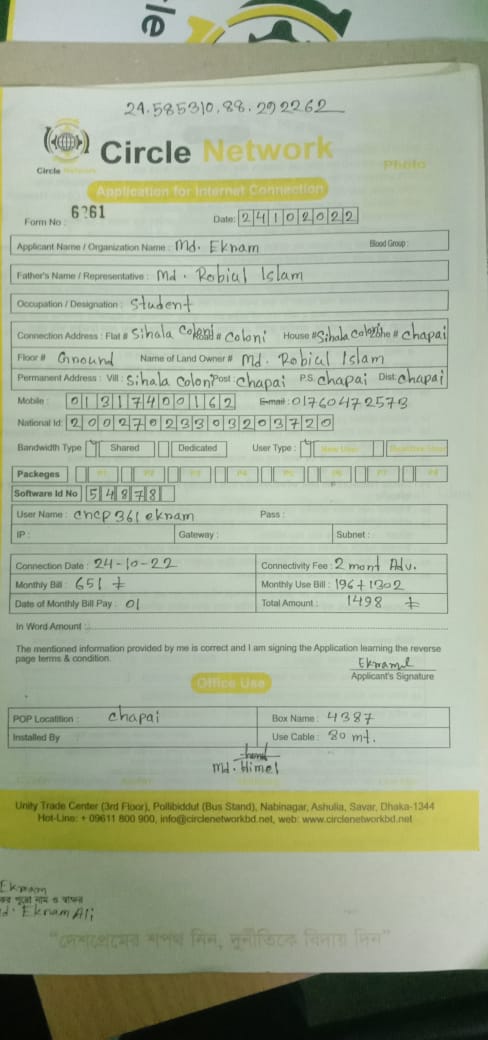 24.585310.88.292262
Circle Network
Circle Network
Photo
Application for Internet Connection
Form No : 6261
Date: 24102022
Applicant Name / Organization Name : Md. Eknam Blood Group :
Father's Name / Representative : Md. Robiul Islam
Occupation / Designation : Student
Connection Address : Flat # Sihala Coloni # Coloni House # Sihala Coloni # chapai
Floor # Ground Name of Land Owner # Md. Robiul Islam
Permanent Address : Vill : Sihala Coloni Post : chapai P.S. chapai Dist: chapai
Mobile : 01317400162 E-mail : 01760472573
National Id: 20027023303203720
Bandwidth Type Shared Dedicated User Type : New User
Packeges P1 P2 P3 P4 P5 P6 P7 P8
Software Id No 54878
User Name : cncp361eknam Pass :
IP : Gateway : Subnet :
Connection Date : 24-10-22 Connectivity Fee : 2 mont Adv.
Monthly Bill : 651 Monthly Use Bill : 196+1302
Date of Monthly Bill Pay : 01 Total Amount : 1498
In Word Amount :
The mentioned information provided by me is correct and I am signing the Application learning the reverse
page terms & condition.
Applicant's Signature
Office Use
POP Locatition : chapai Box Name : 4387
Installed By Use Cable : 80 mt.
Md. Himel
Unity Trade Center (3rd Floor), Pollibiddut (Bus Stand), Nabinagar, Ashulia, Savar, Dhaka-1344
Hot-Line: + 09611 800 900, info@circlenetworkbd.net, web: www.circlenetworkbd.net
Eknam
পুরো নাম ও স্বাক্ষর
Eknam Ali
"দেশপ্রেমের শপথ নিন, দুর্নীতিকে বিদায় দিন"